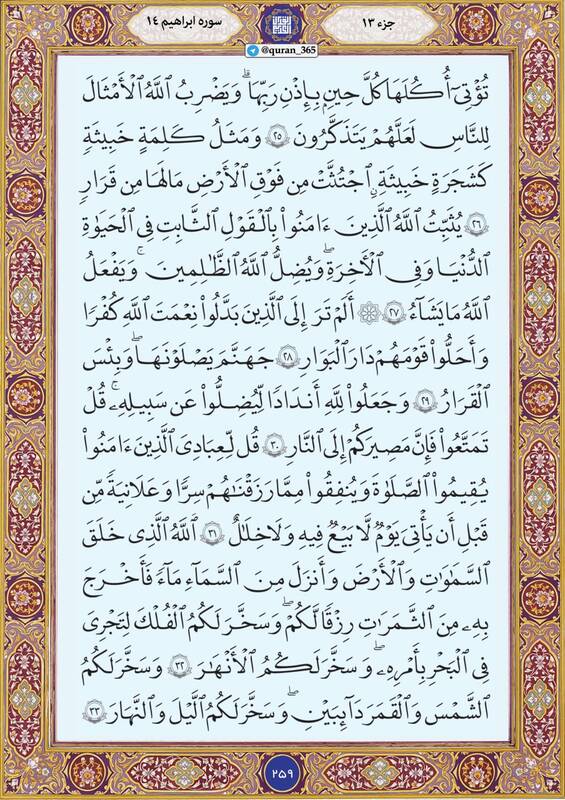 جزء ۱۳
سوره ابراهیم ۱۴
@quran_365
تُؤْتِىٓ أُكُلَهَا كُلَّ حِينٍۭ بِإِذْنِ رَبِّهَا ۗ وَيَضْرِبُ ٱللَّهُ ٱلْأَمْثَالَ
لِلنَّاسِ لَعَلَّهُمْ يَتَذَكَّرُونَ ۲۵ وَمَثَلُ كَلِمَةٍ خَبِيثَةٍ
كَشَجَرَةٍ خَبِيثَةٍ ٱجْتُثَّتْ مِن فَوْقِ ٱلْأَرْضِ مَا لَهَا مِن قَرَارٍ
۲۶ يُثَبِّتُ ٱللَّهُ ٱلَّذِينَ ءَامَنُوا۟ بِٱلْقَوْلِ ٱلثَّابِتِ فِى ٱلْحَيَوٰةِ
ٱلدُّنْيَا وَفِى ٱلْءَاخِرَةِ ۖ وَيُضِلُّ ٱللَّهُ ٱلظَّٰلِمِينَ ۚ وَيَفْعَلُ
ٱللَّهُ مَا يَشَآءُ ۲۷ ۞ أَلَمْ تَرَ إِلَى ٱلَّذِينَ بَدَّلُوا۟ نِعْمَتَ ٱللَّهِ كُفْرًا
وَأَحَلُّوا۟ قَوْمَهُمْ دَارَ ٱلْبَوَارِ ۲۸ جَهَنَّمَ يَصْلَوْنَهَا ۖ وَبِئْسَ
ٱلْقَرَارُ ۲۹ وَجَعَلُوا۟ لِلَّهِ أَندَادًا لِّيُضِلُّوا۟ عَن سَبِيلِهِۦ ۗ قُلْ
تَمَتَّعُوا۟ فَإِنَّ مَصِيرَكُمْ إِلَى ٱلنَّارِ ۳۰ قُل لِّعِبَادِىَ ٱلَّذِينَ ءَامَنُوا۟
يُقِيمُوا۟ ٱلصَّلَوٰةَ وَيُنفِقُوا۟ مِمَّا رَزَقْنَٰهُمْ سِرًّا وَعَلَانِيَةً مِّن
قَبْلِ أَن يَأْتِىَ يَوْمٌ لَّا بَيْعٌ فِيهِ وَلَا خِلَٰلٌ ۳۱ ٱللَّهُ ٱلَّذِى خَلَقَ
ٱلسَّمَٰوَٰتِ وَٱلْأَرْضَ وَأَنزَلَ مِنَ ٱلسَّمَآءِ مَآءً فَأَخْرَجَ
بِهِۦ مِنَ ٱلثَّمَرَٰتِ رِزْقًا لَّكُمْ ۖ وَسَخَّرَ لَكُمُ ٱلْفُلْكَ لِتَجْرِىَ
فِى ٱلْبَحْرِ بِأَمْرِهِۦ ۖ وَسَخَّرَ لَكُمُ ٱلْأَنْهَٰرَ ۳۲ وَسَخَّرَ لَكُمُ
ٱلشَّمْسَ وَٱلْقَمَرَ دَآئِبَيْنِ ۖ وَسَخَّرَ لَكُمُ ٱلَّيْلَ وَٱلنَّهَارَ ۳۳
۲۵۹